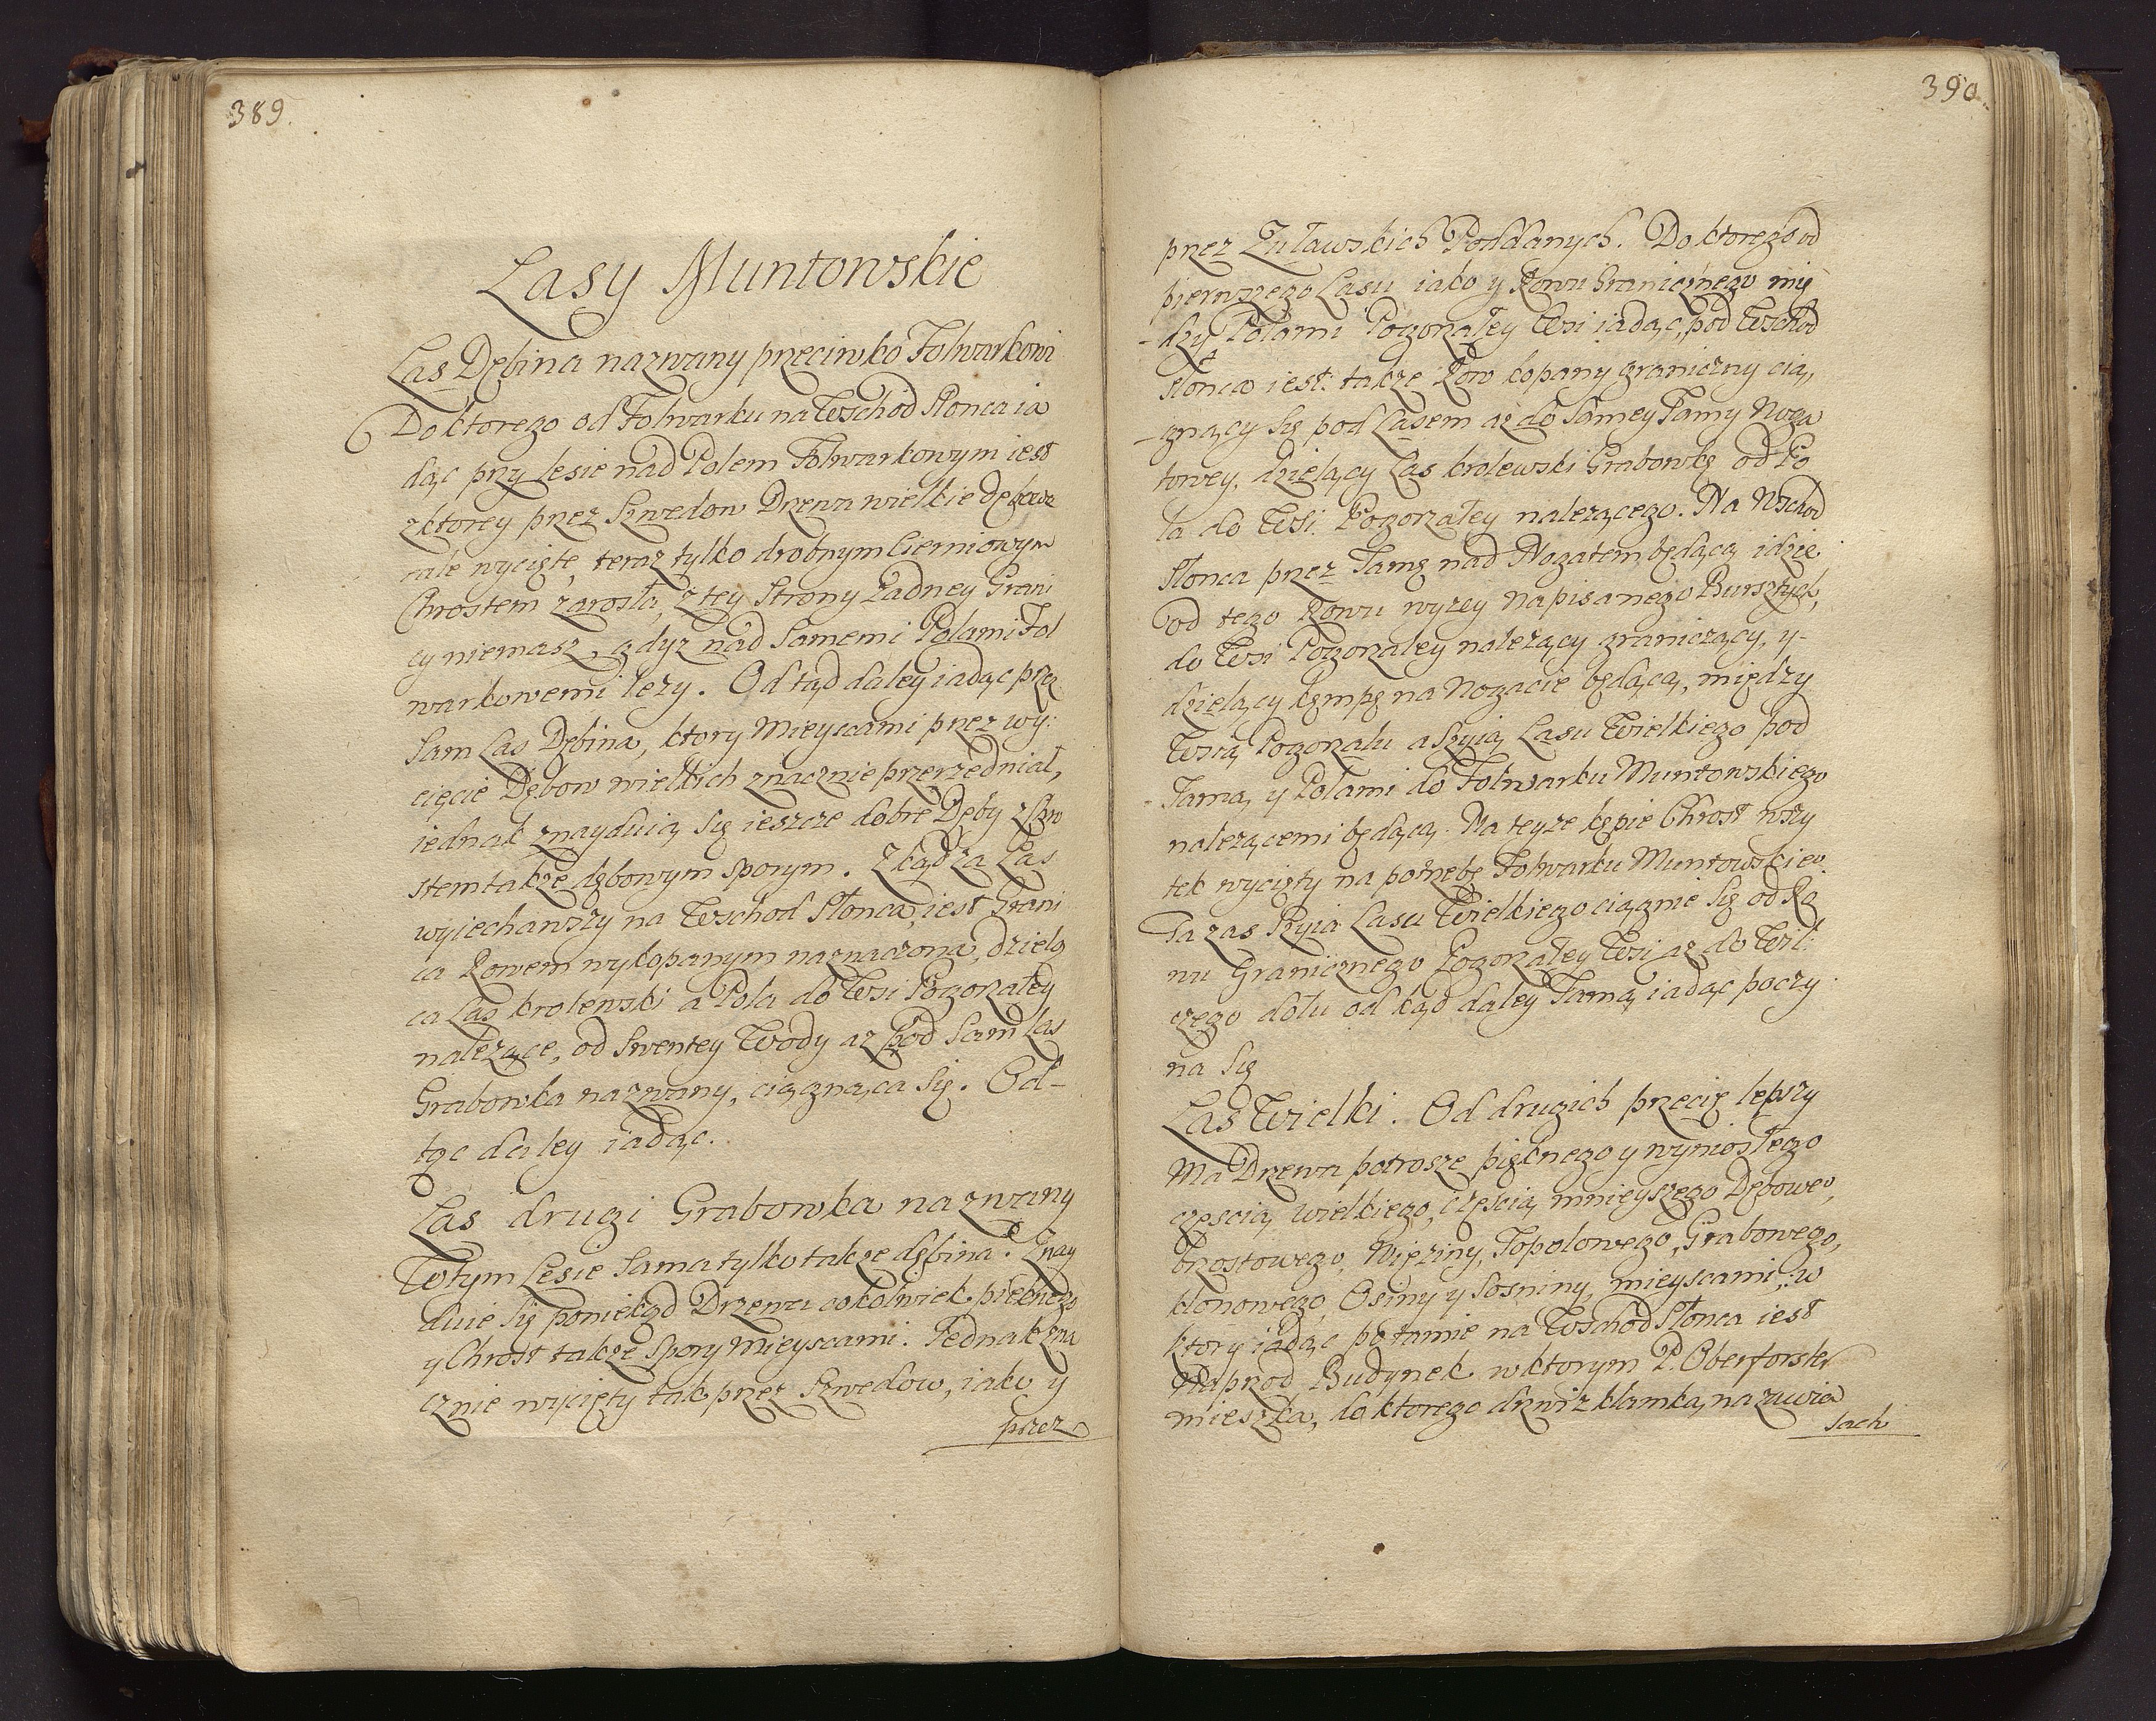 389.
Lasy Muntowskie
Las Dębina nazwany przeciwko Folwarkowi
Do ktorego od Folwarku na Wschod Słonca ia
dąc przy lesie nad Polem Folwarkowym iest
z ktorey przez Szwedow Drzewa wielkie Dębowe
cale wycięte, teraz tylko drobnym Cierniowym
Chrostem zarosła, z tey Strony żadney Grani
cy niemasz, gdyz nad Samemi Polami Fol
warkowemi leży. Od tąd daley iadąc przez
Sam Las Dębina, ktory Mieyscami przez wy:
cięcie Dębow wielkich znacznie przerzedniał,
iednak znayduią się ieszcze dobre Dęby z Chro
stem takze dębowym sporym. Zkąd za Las
wyiechawszy na Wschod Słonca, iest Grani
ca Rowem wykopanym naznaczona, dzielą
ca Las krolewski a Pola do Wsi Pogorzałey
należące, od Swentey Wody az pod Sam Las
Grabowka nazwany, ciągnąca Się. Od-
tąd daley iadąc.
Las drugi Grabowka nazwany
W tym Lesie Sama tylko takze dębina. Znay
duie Się poniekąd Drzewa cokolwiek pieknego
y Chrost takze Spory Mieyscami. Jednak zna
cznie wycięty tak przez Szwedow, iako y
przez
390.
przez Żuławskich Poddanych. Do ktorego od
pierwszego Lasu iako y Rowu Granicznego mię
-dzy Polami Pogorzałey Wsi iadąc, pod Wschod
Słonca iest takze Row kopany graniczny cią„
-gnący Się pod Lasem az do Samey Tamy Noga
towey, dzielący Las krolewski Grabowkę od Po
la do Wsi Pogorzałey nalezącego. Na Wschod
Słonca przez Tamę nad Nogatem będącą idzie
od tego Rowu wyzey napisanego Bursztych,
do Wsi Pogorzałey nalezący graniczący, y-
dzielący kępę na Nogacie będącą, między
Wsią Pogorzału a Szyią Lasu Wielkiego pod
Tamą y Polami do Folwarku Muntowskiego
nalezącemi będącą. Na teyze kępie Chrost wszy
tek wycięty na potrzebę Folwarku Muntowskiego.
Ta zas Szyia Lasu Wielkiego ciągnie Się od Ro
wu Granicznego Pogorzałey Wsi az do Wil:
czego dołu od kąd daley Tamą iadąc poczy
na Się
Las Wielki. Od drugich przecię lepszy
Ma Drzewa potrosze pięknego y wyniosłego
częscią wielkiego, częscią mnieyszego Dębowego,
brzostowego, Więziny, Topolowego, Grabowego,
klonowego, Osiny y Sosniny, mieyscami, w
ktory iadąc po tamie na Wschod Słonca iest
Naprzod Budynek w ktorym P. Oberforster
mieszka, do ktorego drzwi z klamką, na zawia
sach